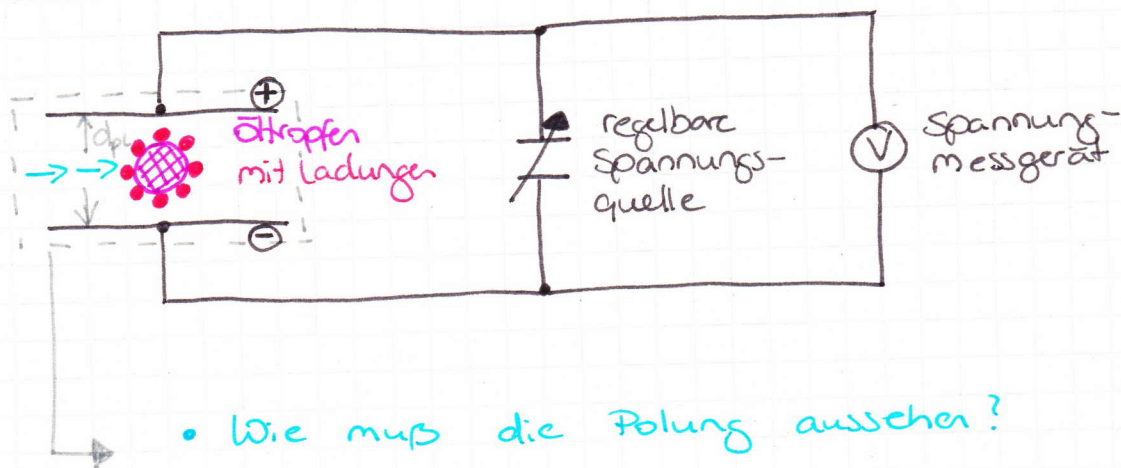 +
dpl
Öltropfen
mit Ladungen
-
regelbare
Spannungs-
quelle
V
Spannung-
messgerät
• Wie muß die Polung aussehen?